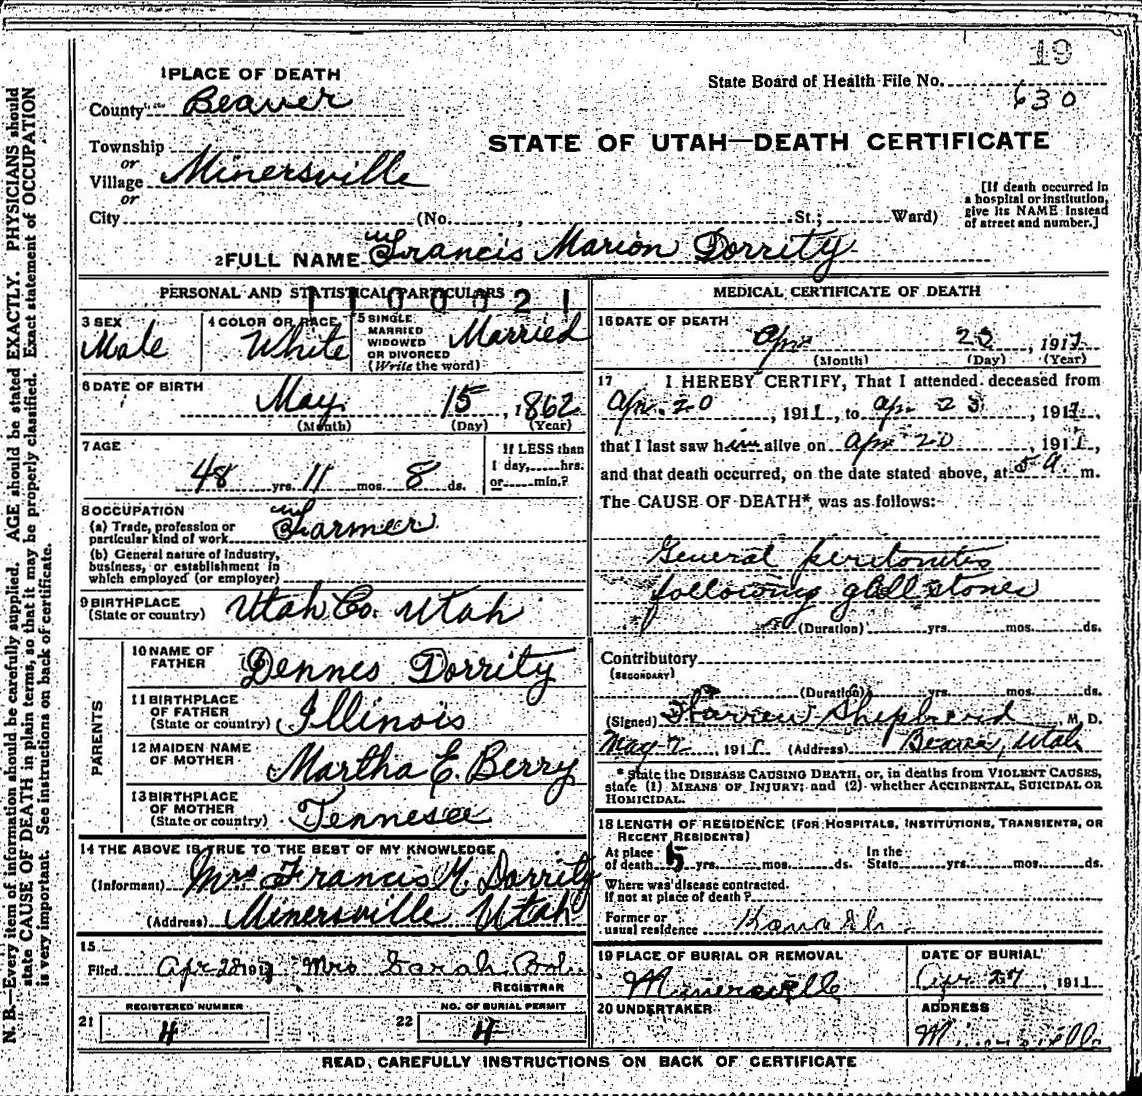 19
State Board of Health File No. 630
1 PLACE OF DEATH
County Beaver
STATE OF UTAH—DEATH CERTIFICATE
Township
or
Village Minersville
or
City (No. , St.; Ward)
[If death occurred in a hospital or institution, give its NAME instead of street and number.]
2 FULL NAME Francis Marion Dorrity
PERSONAL AND STATISTICAL PARTICULARS
1100021
3 SEX Male
4 COLOR OR RACE White
5 SINGLE MARRIED WIDOWED OR DIVORCED (Write the word) Married
6 DATE OF BIRTH May 15, 1862
(Month) (Day) (Year)
7 AGE 48 yrs. 11 mos. 8 ds.
If LESS than 1 day, hrs. or min.?
8 OCCUPATION
(a) Trade, profession or particular kind of work Farmer
(b) General nature of industry, business, or establishment in which employed (or employer)
9 BIRTHPLACE (State or country) Utah Co. Utah
PARENTS
10 NAME OF FATHER Dennes Dorrity
11 BIRTHPLACE OF FATHER (State or country) Illinois
12 MAIDEN NAME OF MOTHER Martha E. Berry
13 BIRTHPLACE OF MOTHER (State or country) Tennesee
14 THE ABOVE IS TRUE TO THE BEST OF MY KNOWLEDGE
(Informant) Mrs Francis M. Dorrity
(Address) Minersville Utah
15
Filed Apr 28 191 Mrs Sarah
REGISTRAR
REGISTERED NUMBER
21 4
NO. OF BURIAL PERMIT
22 4
MEDICAL CERTIFICATE OF DEATH
16 DATE OF DEATH Apr 23, 1911
(Month) (Day) (Year)
17 I HEREBY CERTIFY, That I attended deceased from
Apr. 20, 1911, to Apr 23, 1911,
that I last saw him alive on Apr 20, 1911,
and that death occurred, on the date stated above, at 5 a. m.
The CAUSE OF DEATH* was as follows:
General peritonitis
following gall stones
(Duration) yrs. mos. ds.
Contributory
(SECONDARY)
(Duration) yrs. mos. ds.
(Signed) Warren Shepherd, M. D.
May 2, 1911 (Address) Beaver, Utah
* State the DISEASE CAUSING DEATH, or, in deaths from VIOLENT CAUSES,
state (1) MEANS OF INJURY; and (2) whether ACCIDENTAL, SUICIDAL OR
HOMICIDAL.
18 LENGTH OF RESIDENCE (FOR HOSPITALS, INSTITUTIONS, TRANSIENTS, OR
RECENT RESIDENTS)
At place of death 5 yrs. mos. ds. In the State yrs. mos. ds.
Where was disease contracted.
if not at place of death?
Former or usual residence Kanab
19 PLACE OF BURIAL OR REMOVAL Minersville
DATE OF BURIAL Apr. 27, 1911
20 UNDERTAKER
ADDRESS Minersville
READ CAREFULLY INSTRUCTIONS ON BACK OF CERTIFICATE
N. B.—Every item of information should be carefully supplied. AGE should be stated EXACTLY. PHYSICIANS should
state CAUSE OF DEATH in plain terms, so that it may be properly classified. Exact statement of OCCUPATION
is very important. See instructions on back of certificate.